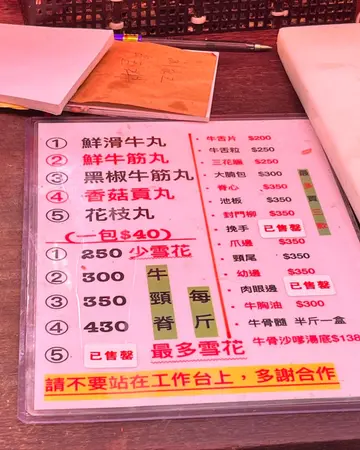 ① 鮮滑牛丸
② 鮮牛筋丸
③ 黑椒牛筋丸
④ 香菇貢丸
⑤ 花枝丸
(一包$40)
① 250 少雪花
② 300
③ 350
④ 430
⑤ 已售罄
牛頸脊
每斤
最多雪花
牛舌片 $200
牛舌粒 $250
三花腩 $250
大腩包 $300
脊心 $350
池板 $350
封門柳 $350
挽手 已售罄
爪邊 $350
頸尾 $350
幼邊 $350
肉眼邊 已售罄
牛胸油 $300
牛骨髓 半斤一盒
牛骨沙嗲湯底$138
請不要站在工作台上，多謝合作